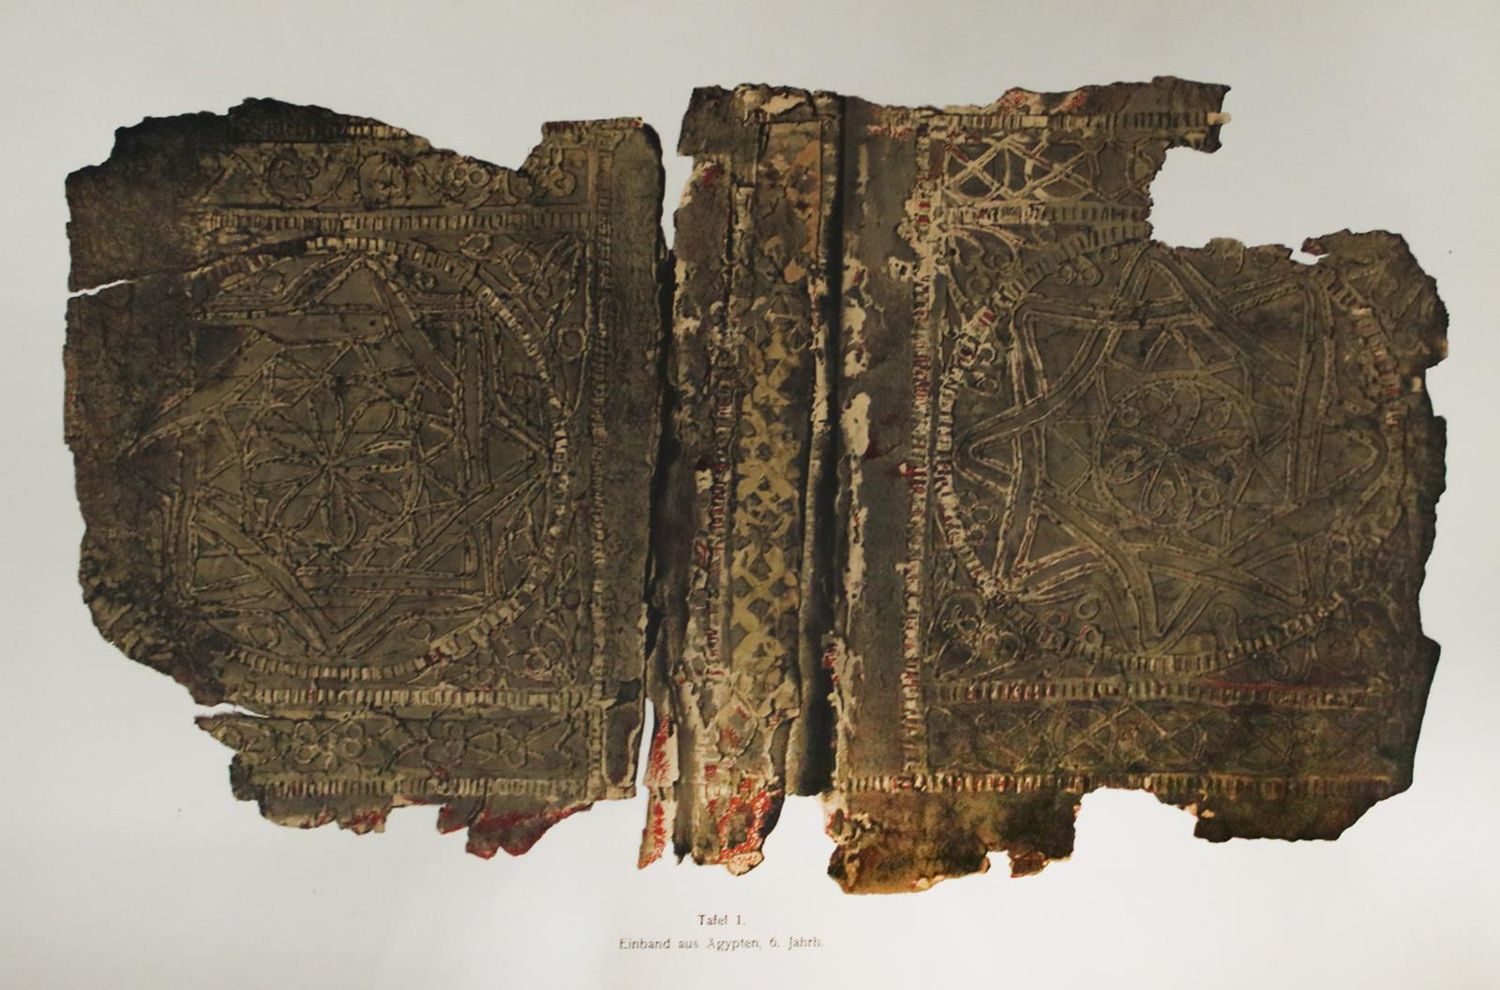 Tafel 1.
Einband aus Ägypten, 6. Jahrh.